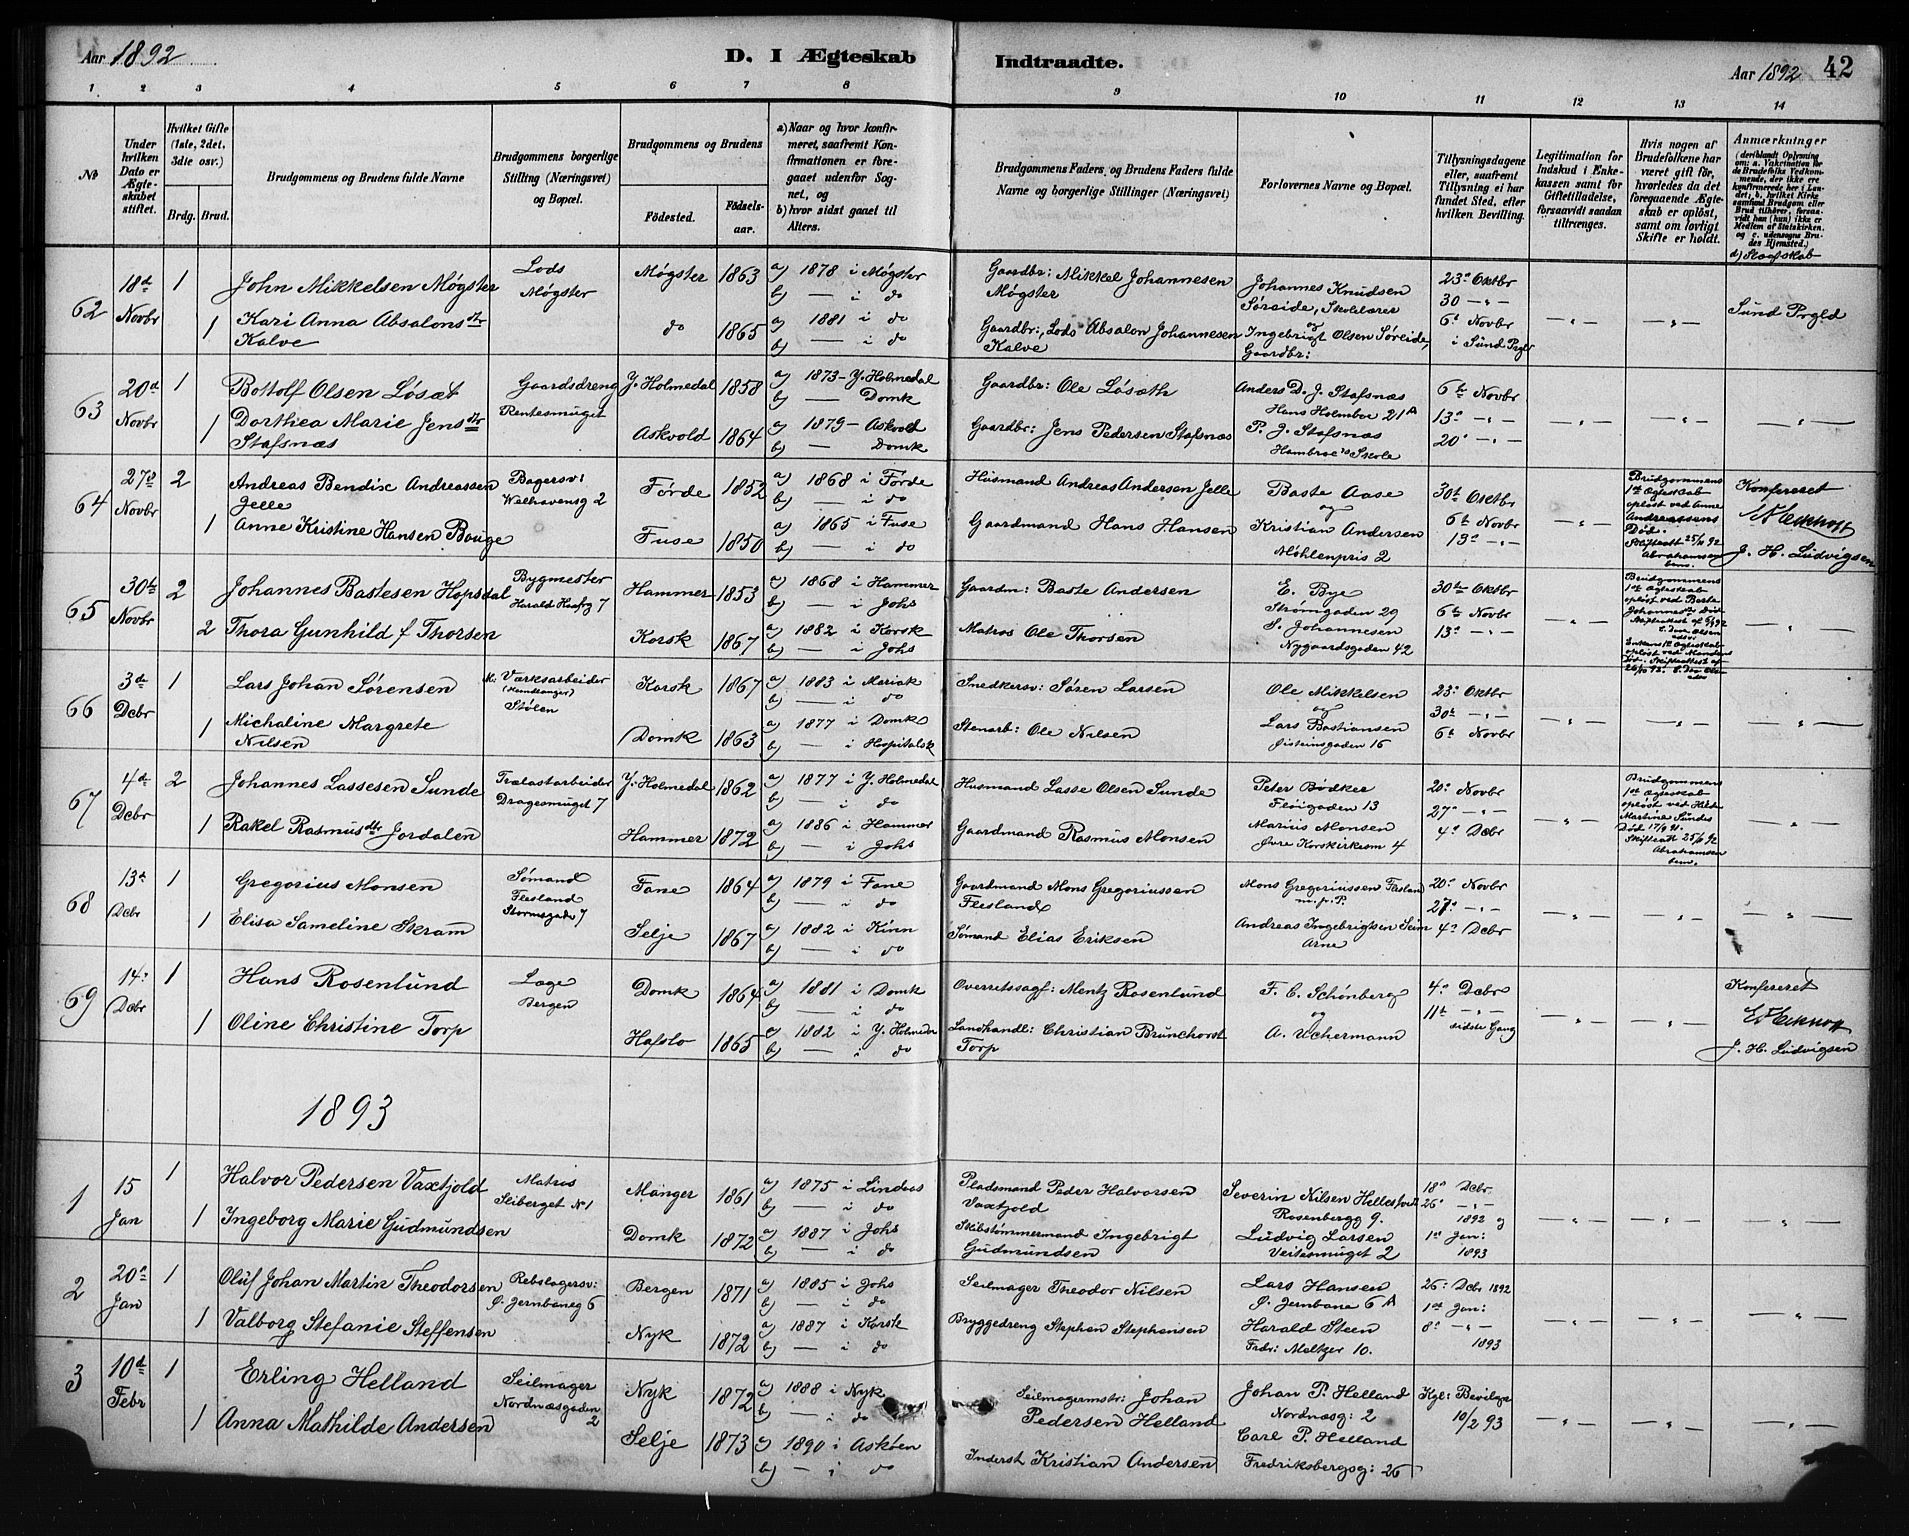 Aar 1892
D. I Ægteskab Indtraadte.
Aar 1892 42
1 2 3 4 5 6 7 8 9 10 11 12 13 14
No
Under hvilken Dato er Ægteskabet stiftet.
Hvilket Gifte (1ste, 2det, 3die osv.)
Brdg. Brud.
Brudgommens og Brudens fulde Navne
Brudgommens borgerlige Stilling (Næringsvei) og Bopæl.
Brudgommens og Brudens
Fødested. Fødselsaar.
a) Naar og hvor konfirmeret, saafremt Konfirmationen er foregaaet udenfor Sognet, og
b) hvor sidst gaaet til Alters.
Brudgommens Faders, og Brudens Faders fulde Navne og borgerlige Stillinger (Næringsvei)
Forlovernes Navne og Bopæl.
Tillysningsdagene eller, saafremt Tillysning ei har fundet Sted, efter hvilken Bevilling.
Legitimation for Indskud i Enkekassen samt for Giftetilladelse, forsaavidt saadan tiltrænges.
Hvis nogen af Brudefolkene har været gift før, hvorledes da det foregaaende Ægteskab er opløst, samt om lovligt Skifte er holdt.
Anmærkninger
(deriblandt Oplysning om: a. Vakcination for de Brudefolks Vedkommende, der ikke ere konfirmerede her i Landet; b. hvilket Kirkesamfund Brudgom eller Brud tilhører, forsaavidt han (hun) ikke er Medlem af Statskirken, og c. udensogns Brudes Hjemsted.)
62
18d Novbr
1
John Mikkelsen Møgster
Lods
Møgster
Møgster 1863
a) 1878 i Møgster
b) — i do
Gaardbr: Mikkel Johannesen
Møgster
Johannes Knudsen
Søreide, Skolelærer
og
Ingebrigt Olsen Søreide,
Gaardbr:
23d Oktbr
30 - " -
6t Novbr
i Sund Prgld
Sund Prgld
1
Kari Anna Absalonsdtr
Kalve
do 1865
a) 1881 i do
b) — i do
Gaardbr:, Lods Absalon Johannesen
Kalve
63
20d Novbr
1
Bottolf Olsen Løsæt
Gaardsdreng
Rentesmuget
Y. Holmedal 1858
a) 1873 - Y. Holmedal
b) — Domk
Gaardbr: Ole Løsæth
Anders D. J. Stafsnæs
Hans Holmboe 21 A
P. J. Stafsnæs
Hambroe's Skole
6te Novbr
13d - " -
20d - " -
1
Dorthea Marie Jensdtr
Stafsnæs
Askvold 1864
a) 1879 - Askvold
b) — Domk
Gaardbr: Jens Pedersen Stafsnæs
64
27d Novbr
2
Andreas Bendix Andreassen
Jelle
Bagersv:
Welhavensg 2
Førde 1852
a) 1868 i Førde
b) — i do
Husmand Andreas Andersen Jelle
Baste Aase
og
Kristian Andersen
Møhlenpris 2
30te Oktbr
6te Novbr
13d - " -
Brudgommens
1ste Ægteskab
opløst ved Anne
Andreassens
Død.
Skifteatt 25/11 92
Abrahamsen
Konfereret
J. H. Ludvigsen
1
Anne Kristine Hansen Bouge
Fuse 1850
a) 1865 i Fuse
b) — i do
Gaardmand Hans Hansen
65
30te Novbr
2
Johannes Bastesen Hopsdal
Bygmester
Hammer 1853
a) 1868 i Hammer
b) — i Johs
Gaardm: Baste Andersen
E. Bye
Strømgaden 29
S. Johannesen
Nygaardsgaden 42
30te Oktbr
6te Novbr
13d - " -
Brudgommens
1ste Ægteskab
opløst ved Berte
2
Thora Gunhild f Thorsen
Korsk 1867
a) 1882 i Korsk
b) — i Johs
Matros Ole Thorsen
66
3de Dcbr
1
Lars Johan Sørensen
M: Værksarbeider
Stølen
Korsk 1867
a) 1883 i Mariak
b) — do
Snedkersv: Søren Larsen
Ole Mikkelsen
og
Lars Bastiansen
Øistensgaden 16
23d Oktbr
30te - " -
6te Novbr
1
Michaline Margrete
Nilsen
Domk 1863
a) 1877 i Domk
b) — i Hospitalsk
Stenarb: Ole Nilsen
67
4de Dcbr
2
Johannes Lassesen Sunde
Trælastarbeider
Dragesmuget 7
Y. Holmedal 1862
a) 1877 i Y. Holmedal
b) — i do
Husmand Lasse Olsen Sunde
Peter Bødker
Fløigaden 13
Marius Monsen
Øvre Korskirkesm 4
20d Novbr
27d - " -
4d Dcbr
Brudgommens
1ste Ægteskab
opløst ved Hilde
Martine Sundes
Død 17/9 91.
Skifteatt 25/11 92
Abrahamsen
1
Rakel Rasmusdtr Jordalen
Hammer 1872
a) 1886 i Hammer
b) — i Johs
Gaardmand Rasmus Monsen
68
13d Dcbr
1
Gregorius Monsen
Sømand
Flesland
Stormsgade 7
Fane 1864
a) 1879 i Fane
b) — i do
Gaardmand Mons Gregoriussen
Flesland
Mons Gregoriussen Flesland
m. f. P.
Andreas Ingebrigtsen Seim
Arne
20d Novbr
27d - " -
4d Dcbr
1
Elisa Sameline Skram
Selje 1867
a) 1882 i Kinn
b) — i do
Sømand Elias Eriksen
69
14d Dcbr
1
Hans Rosenlund
Læge
Bergen
Domk 1864
a) 1881 i Domk
b) — i do
Overretssagf: Mentz Rosenlund
F. C. Schønberg
og
A. Uchermann
4d Dcbr
11te - " -
sidste Gang
Konfereret
J. H. Ludvigsen
1
Oline Christine Torp
Hafslo 1865
a) 1882 i Y. Holmedal
b) — i do
Landhandl: Christian Brunchorst
Torp
1893
1
15 Jan
1
Halvor Pedersen Vaxtjold
Matros
Sliberget No 1
Manger 1861
a) 1875 i Lindaas
b) — i do
Pladsmand Peder Halvorsen
Vaxtjold
Severin Nilsen Hellestveit
Rosenbergg 9.
Ludvig Larsen
Veitesmuget 2
18d Dcbr
26d - " -
1892 og
1st Jan:
1893
1
Ingeborg Marie Gudmundsen
Domk 1872
a) 1887 i Johs
b) — i do
Skibstømmermand Ingebrigt
Gudmundsen
2
20d Jan
1
Oluf Johan Martin Theodorsen
Rebslagersv:
Ø. Jernbaneg 6
Bergen 1871
a) 1885 i Johs
b) — i do
Seilmager Theodor Nilsen
Lars Hansen
Ø. Jernbane 6 A
Harald Steen
Fredr: Meltzer 10.
26: Dcbr 1892
1st Jan:
8d - " -
1893
1
Valborg Stefanie Steffensen
Nyk 1872
a) 1887 i Korsk
b) — i do
Bryggedreng Stephan Stephansen
3
10d Febr
1
Erling Helland
Seilmager
Nordnæsgaden
2
Nyk 1872
a) 1888 i Nyk
b) — i do
Seilmagermstr: Johan
Pedersen Helland
Johan P. Helland
Nordnæsg: 2
Carl P. Helland
Fredriksbergsg: 26
Kgl: Bevilgn
10/2 93
1
Anna Mathilde Andersen
Selje 1873
a) 1890 i Askøen
b) — i do
Inderst Kristian Andersen